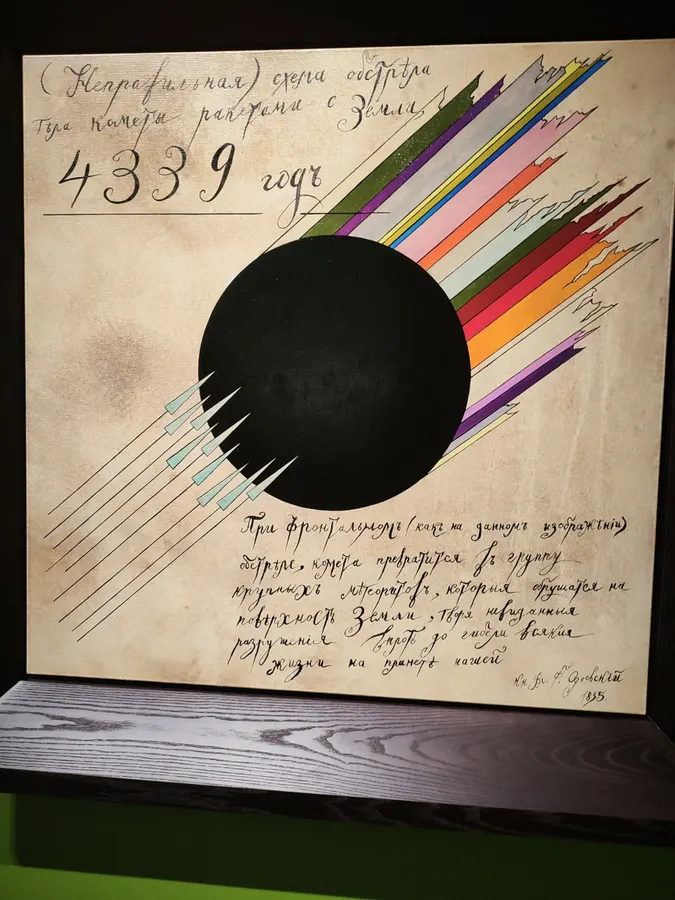 (Неправильная) схема обстрѣла
тѣла кометы ракетами с Земли
4339 годъ
При фронтальномъ (какъ на данномъ изображѣніи)
обстрѣлѣ, комета превратится въ группу
крупныхъ мѣтеоритовъ, которыя обрушатся на
повѣрхность Земли, творя невиданныя
разрушенія вплоть до гибели всякия
жизни на планетѣ нашей
Кн. Вл. Ѳ. Одоевскій
1835.